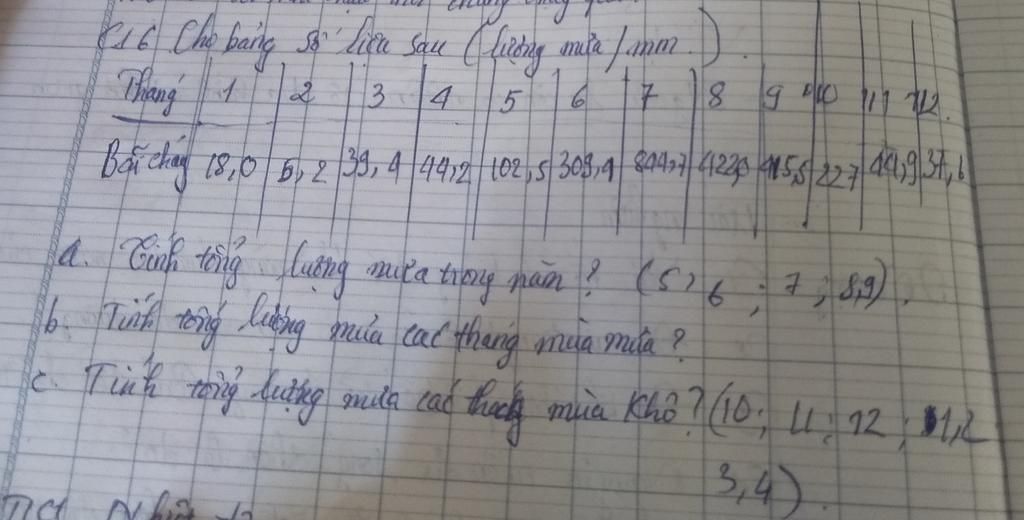 C16 Cho bảng số liệu sau (lượng mưa/mm.)
Tháng 1 2 3 4 5 6 7 8 9 10 11 12
Bãi cháy 18,0 5,2 39,4 44,2 102,5 309,4 415,5 227 44,9
a. Tính tổng lượng mưa trong năm? (5, 6; 7; 8,9).
b. Tính tổng lượng mưa các tháng mùa mưa?
c. Tính tổng lượng mưa các tháng mùa khô? (10; 11; 12; 1,2
3,4)